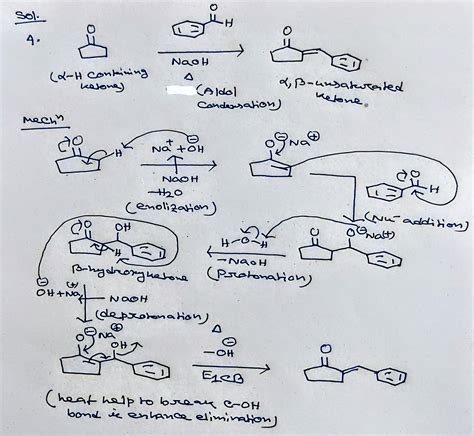 Sol.
4.
O
O
H
O
NaOH
Δ
(α-H containing
ketone)
(Aldol
Condensation)
α,β-unsaturated
ketone.
Mechⁿ
O
H
Na⁺ + ⊖OH
NaOH
-H₂O
(enolization)
O⊖ Na⊕
O
H
(Nu⁻-addition)
O
O⊖ Na⊕
H-O-H
-NaOH
(protonation)
O
OH
H
H
β-hydroxyketone
⊖OH + Na⊕
NaOH
(deprotonation)
O⊖ Na⊕
OH
Δ
-⊖OH
E1CB
O
(heat help to break C-OH
bond ie enhance elimination)